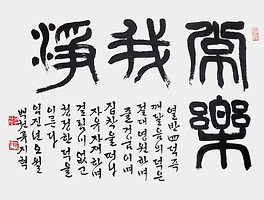 常樂我淨
열반四덕 즉
깨달음의 덕은
절대 영원하며
즐겁고
집착을 떠나
자유자재하며
걸림이 없고
청정한 덕을
이른다
임진년 오월